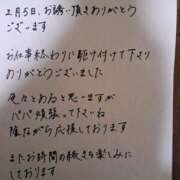 2月5日、お誘い頂きありがとう
ございます
お仕事終わりに駆け付けて下さり
ありがとうございました
色々とあると思いますが
パパ頑張って下さいね
陰ながら応援しております
またお時間の続きを楽しみに
しております